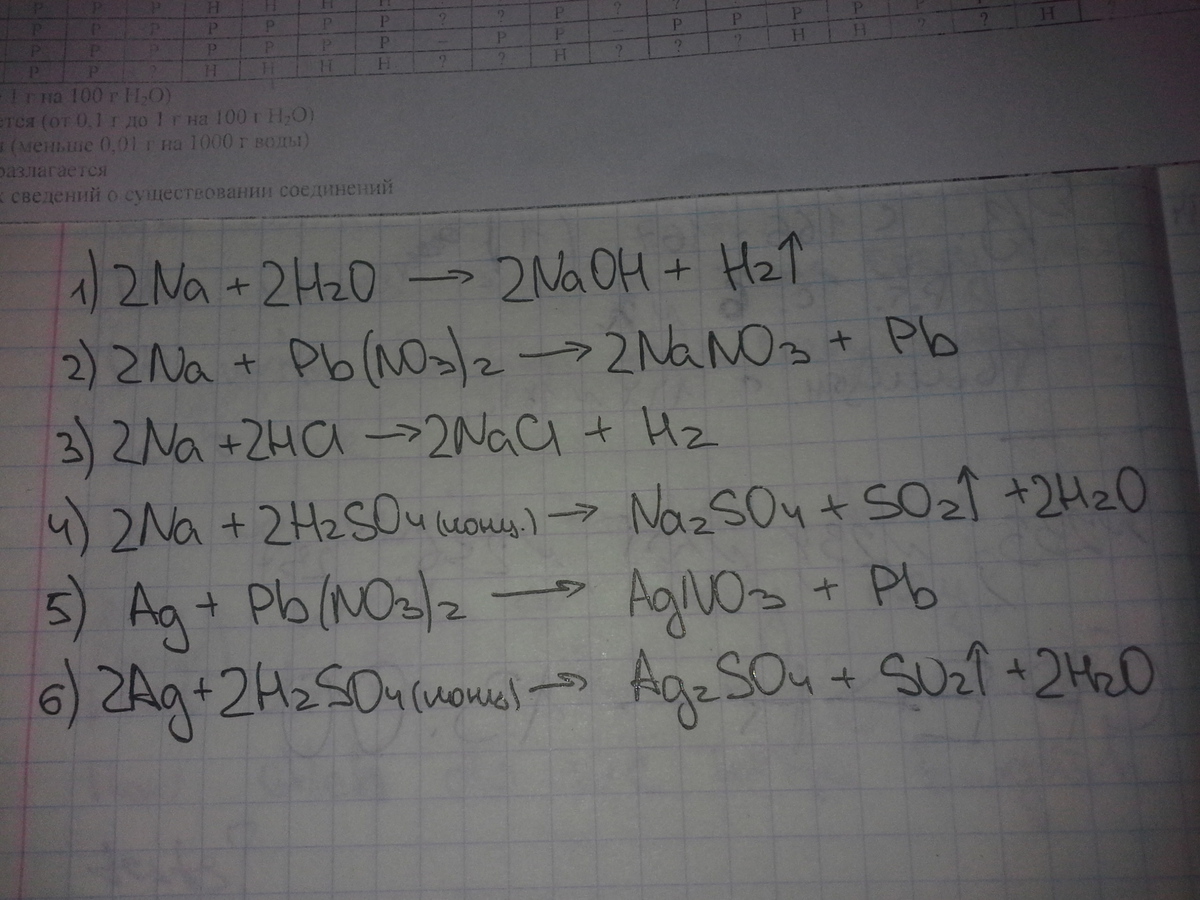 Р Р Р Н Н Н Н ? ? Р ? ?
Р Р Р Р Р Р Р - Р Р - Р Р Р Р ? ?
Р Р ? Н Н Н Н ? ? Н ? ? ? Н Н ? ? Н
1 г на 100 г H₂O)
ется (от 0,1 г до 1 г на 100 г H₂O)
(меньше 0,01 г на 1000 г воды)
разлагается
сведений о существовании соединений
1) 2Na + 2H₂O → 2NaOH + H₂↑
2) 2Na + Pb(NO₃)₂ → 2NaNO₃ + Pb
3) 2Na + 2HCl → 2NaCl + H₂
4) 2Na + 2H₂SO₄ (конц.) → Na₂SO₄ + SO₂↑ + 2H₂O
5) Ag + Pb(NO₃)₂ → AgNO₃ + Pb
6) 2Ag + 2H₂SO₄ (конц) → Ag₂SO₄ + SO₂↑ + 2H₂O